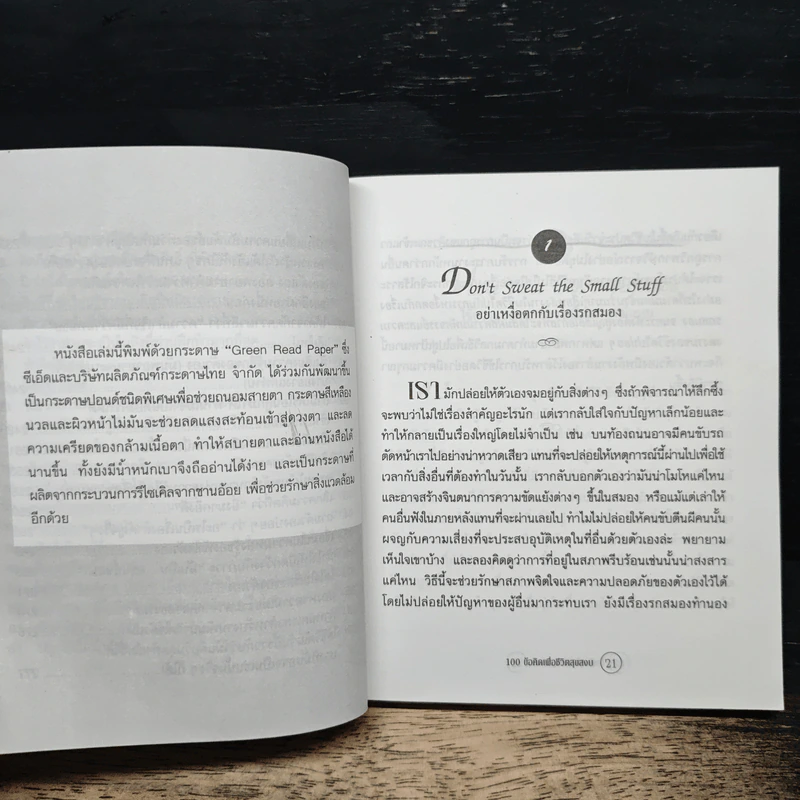 หนังสือเล่มนี้พิมพ์ด้วยกระดาษ “Green Read Paper” ซึ่ง
ซีเอ็ดและบริษัทผลิตภัณฑ์กระดาษไทย จำกัด ได้ร่วมกันพัฒนาขึ้น
เป็นกระดาษปอนด์ชนิดพิเศษเพื่อช่วยถนอมสายตา กระดาษสีเหลือง
นวลและผิวหน้าไม่มันจะช่วยลดแสงสะท้อนเข้าสู่ดวงตา และลด
ความเครียดของกล้ามเนื้อตา ทำให้สบายตาและอ่านหนังสือได้
นานขึ้น ทั้งยังมีน้ำหนักเบาจึงถืออ่านได้ง่าย และเป็นกระดาษที่
ผลิตจากกระบวนการรีไซเคิลจากชานอ้อย เพื่อช่วยรักษาสิ่งแวดล้อม
อีกด้วย
1
Don't Sweat the Small Stuff
อย่าเหงื่อตกกับเรื่องรกสมอง
เรามักปล่อยให้ตัวเองจมอยู่กับสิ่งต่างๆ ซึ่งถ้าพิจารณาให้ลึกซึ้ง
จะพบว่าไม่ใช่เรื่องสำคัญอะไรนัก แต่เรากลับใส่ใจกับปัญหาเล็กน้อยและ
ทำให้กลายเป็นเรื่องใหญ่โดยไม่จำเป็น เช่น บนท้องถนนอาจมีคนขับรถ
ตัดหน้าเราไปอย่างน่าหวาดเสียว แทนที่จะปล่อยให้เหตุการณ์นี้ผ่านไปเพื่อใช้
เวลากับสิ่งอื่นที่ต้องทำในวันนั้น เรากลับบอกตัวเองว่ามันน่าโมโหแค่ไหน
และอาจสร้างจินตนาการความขัดแย้งต่างๆ ขึ้นในสมอง หรือแม้แต่เล่าให้
คนอื่นฟังในภายหลังแทนที่จะผ่านเลยไป ทำไมไม่ปล่อยให้คนขับตีนผีคนนั้น
ผจญกับความเสี่ยงที่จะประสบอุบัติเหตุในที่อื่นด้วยตัวเองล่ะ พยายาม
เห็นใจเขาบ้าง และลองคิดดูว่าการที่อยู่ในสภาพรีบร้อนเช่นนั้นน่าสงสาร
แค่ไหน วิธีนี้จะช่วยรักษาสภาพจิตใจและความปลอดภัยของตัวเองไว้ได้
โดยไม่ปล่อยให้ปัญหาของผู้อื่นมากระทบเรา ยังมีเรื่องรกสมองทำนอง
100 ข้อคิดเพื่อชีวิตสุขสงบ 21